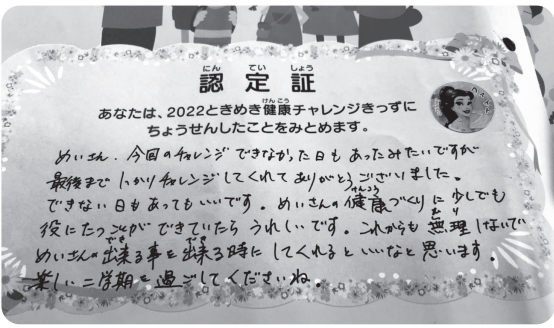 認定証
あなたは、2022ときめき健康チャレンジきっずに
ちょうせんしたことをみとめます。
めいさん、今回のチャレンジできなかった日もあったみたいですが
最後までしっかりチャレンジしてくれてありがとうございました。
できない日もあってもいいです。めいさんの健康づくりに少しでも
役にたつことができていたらうれしいです。これからも無理しないで
めいさんの出来る事を出来る時にしてくれるといいなと思います。
楽しい二学期を過ごしてくださいね。